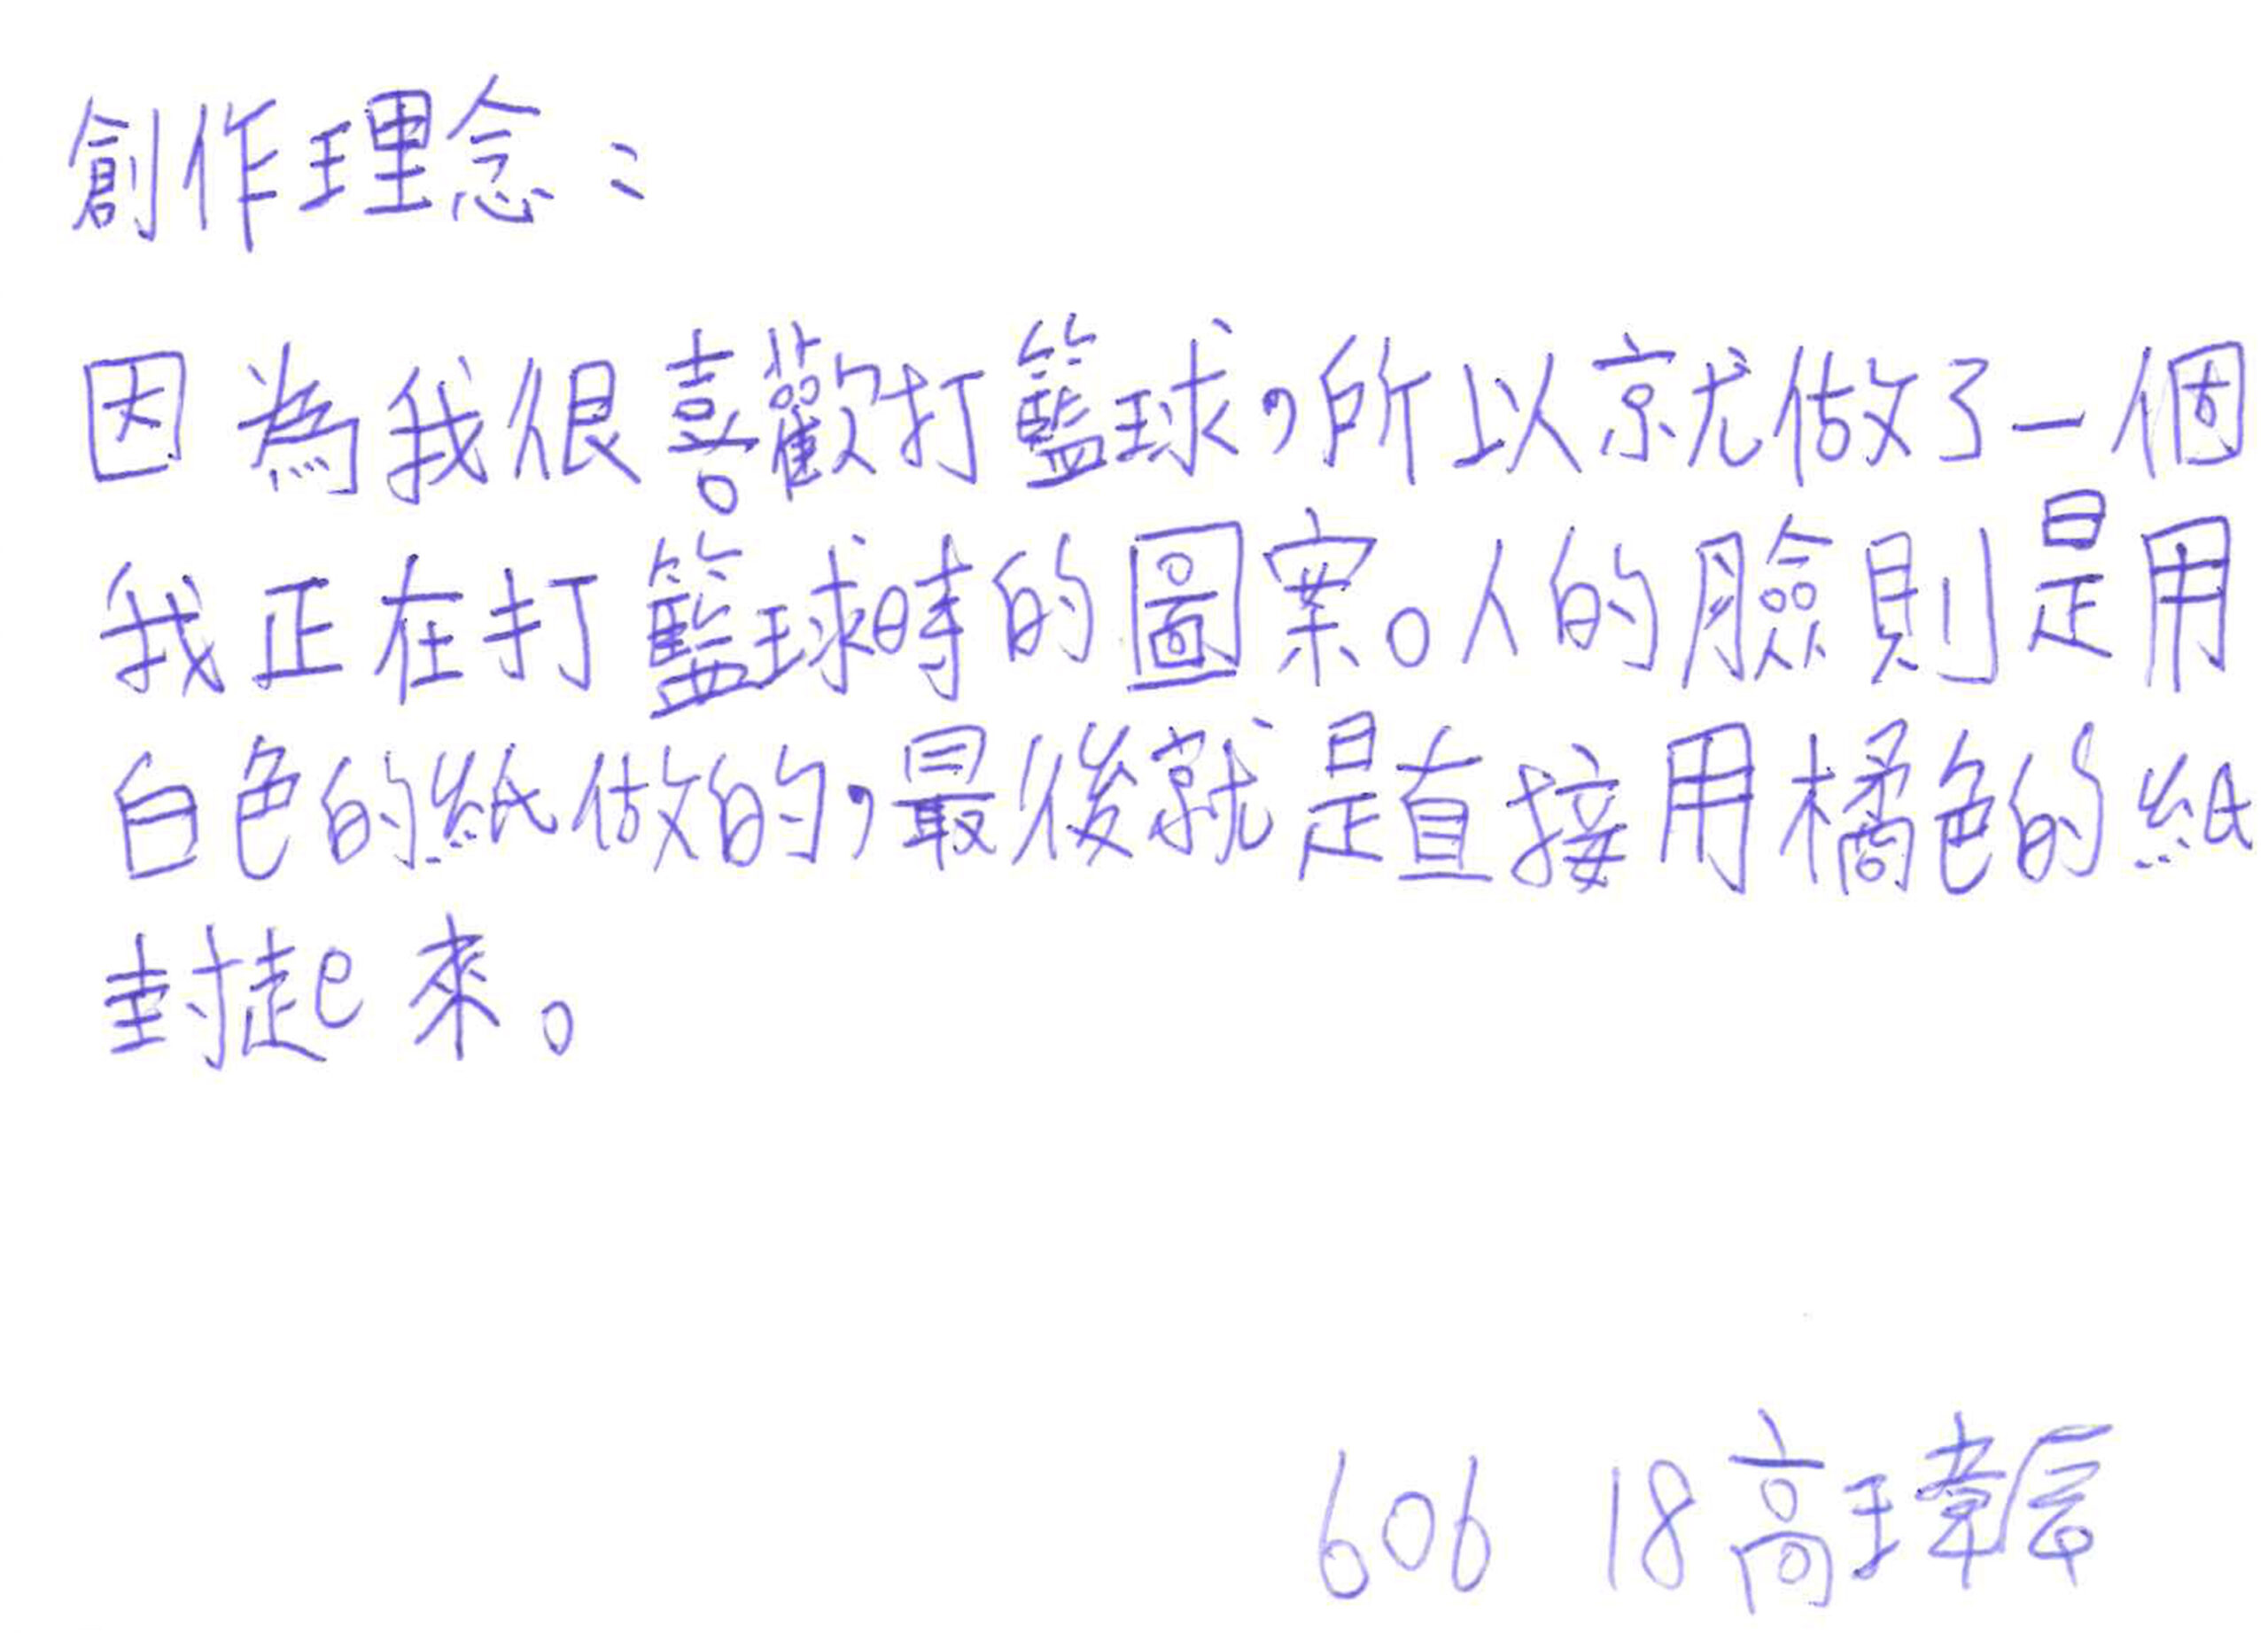 創作理念：
因為我很喜歡打籃球，所以就做了一個
我正在打籃球時的圖案。人的臉則是用
白色的紙做的，最後就是直接用橘色的紙
封起來。
606 18高瑋